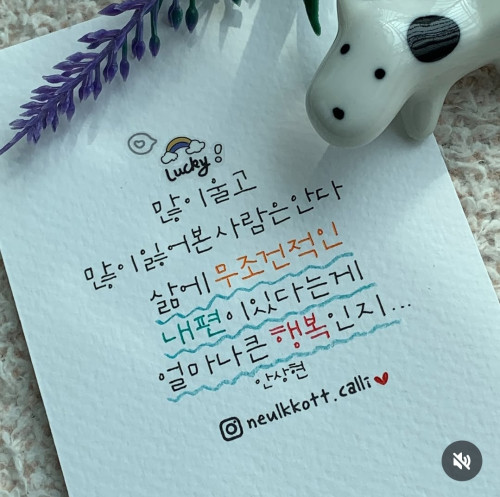 Lucky!
많이 울고
많이 잃어본 사람은 안다
삶에 무조건적인
내편이 있다는게
얼마나 큰 행복인지...
안상현
neulkkott.calli